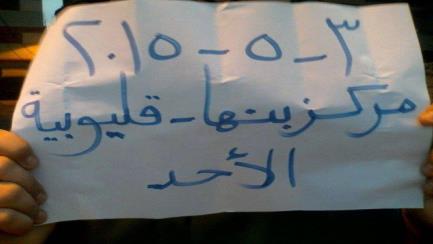 ٣-٥-٢٠١٥
مركز بنها - قليوبية
الأحد